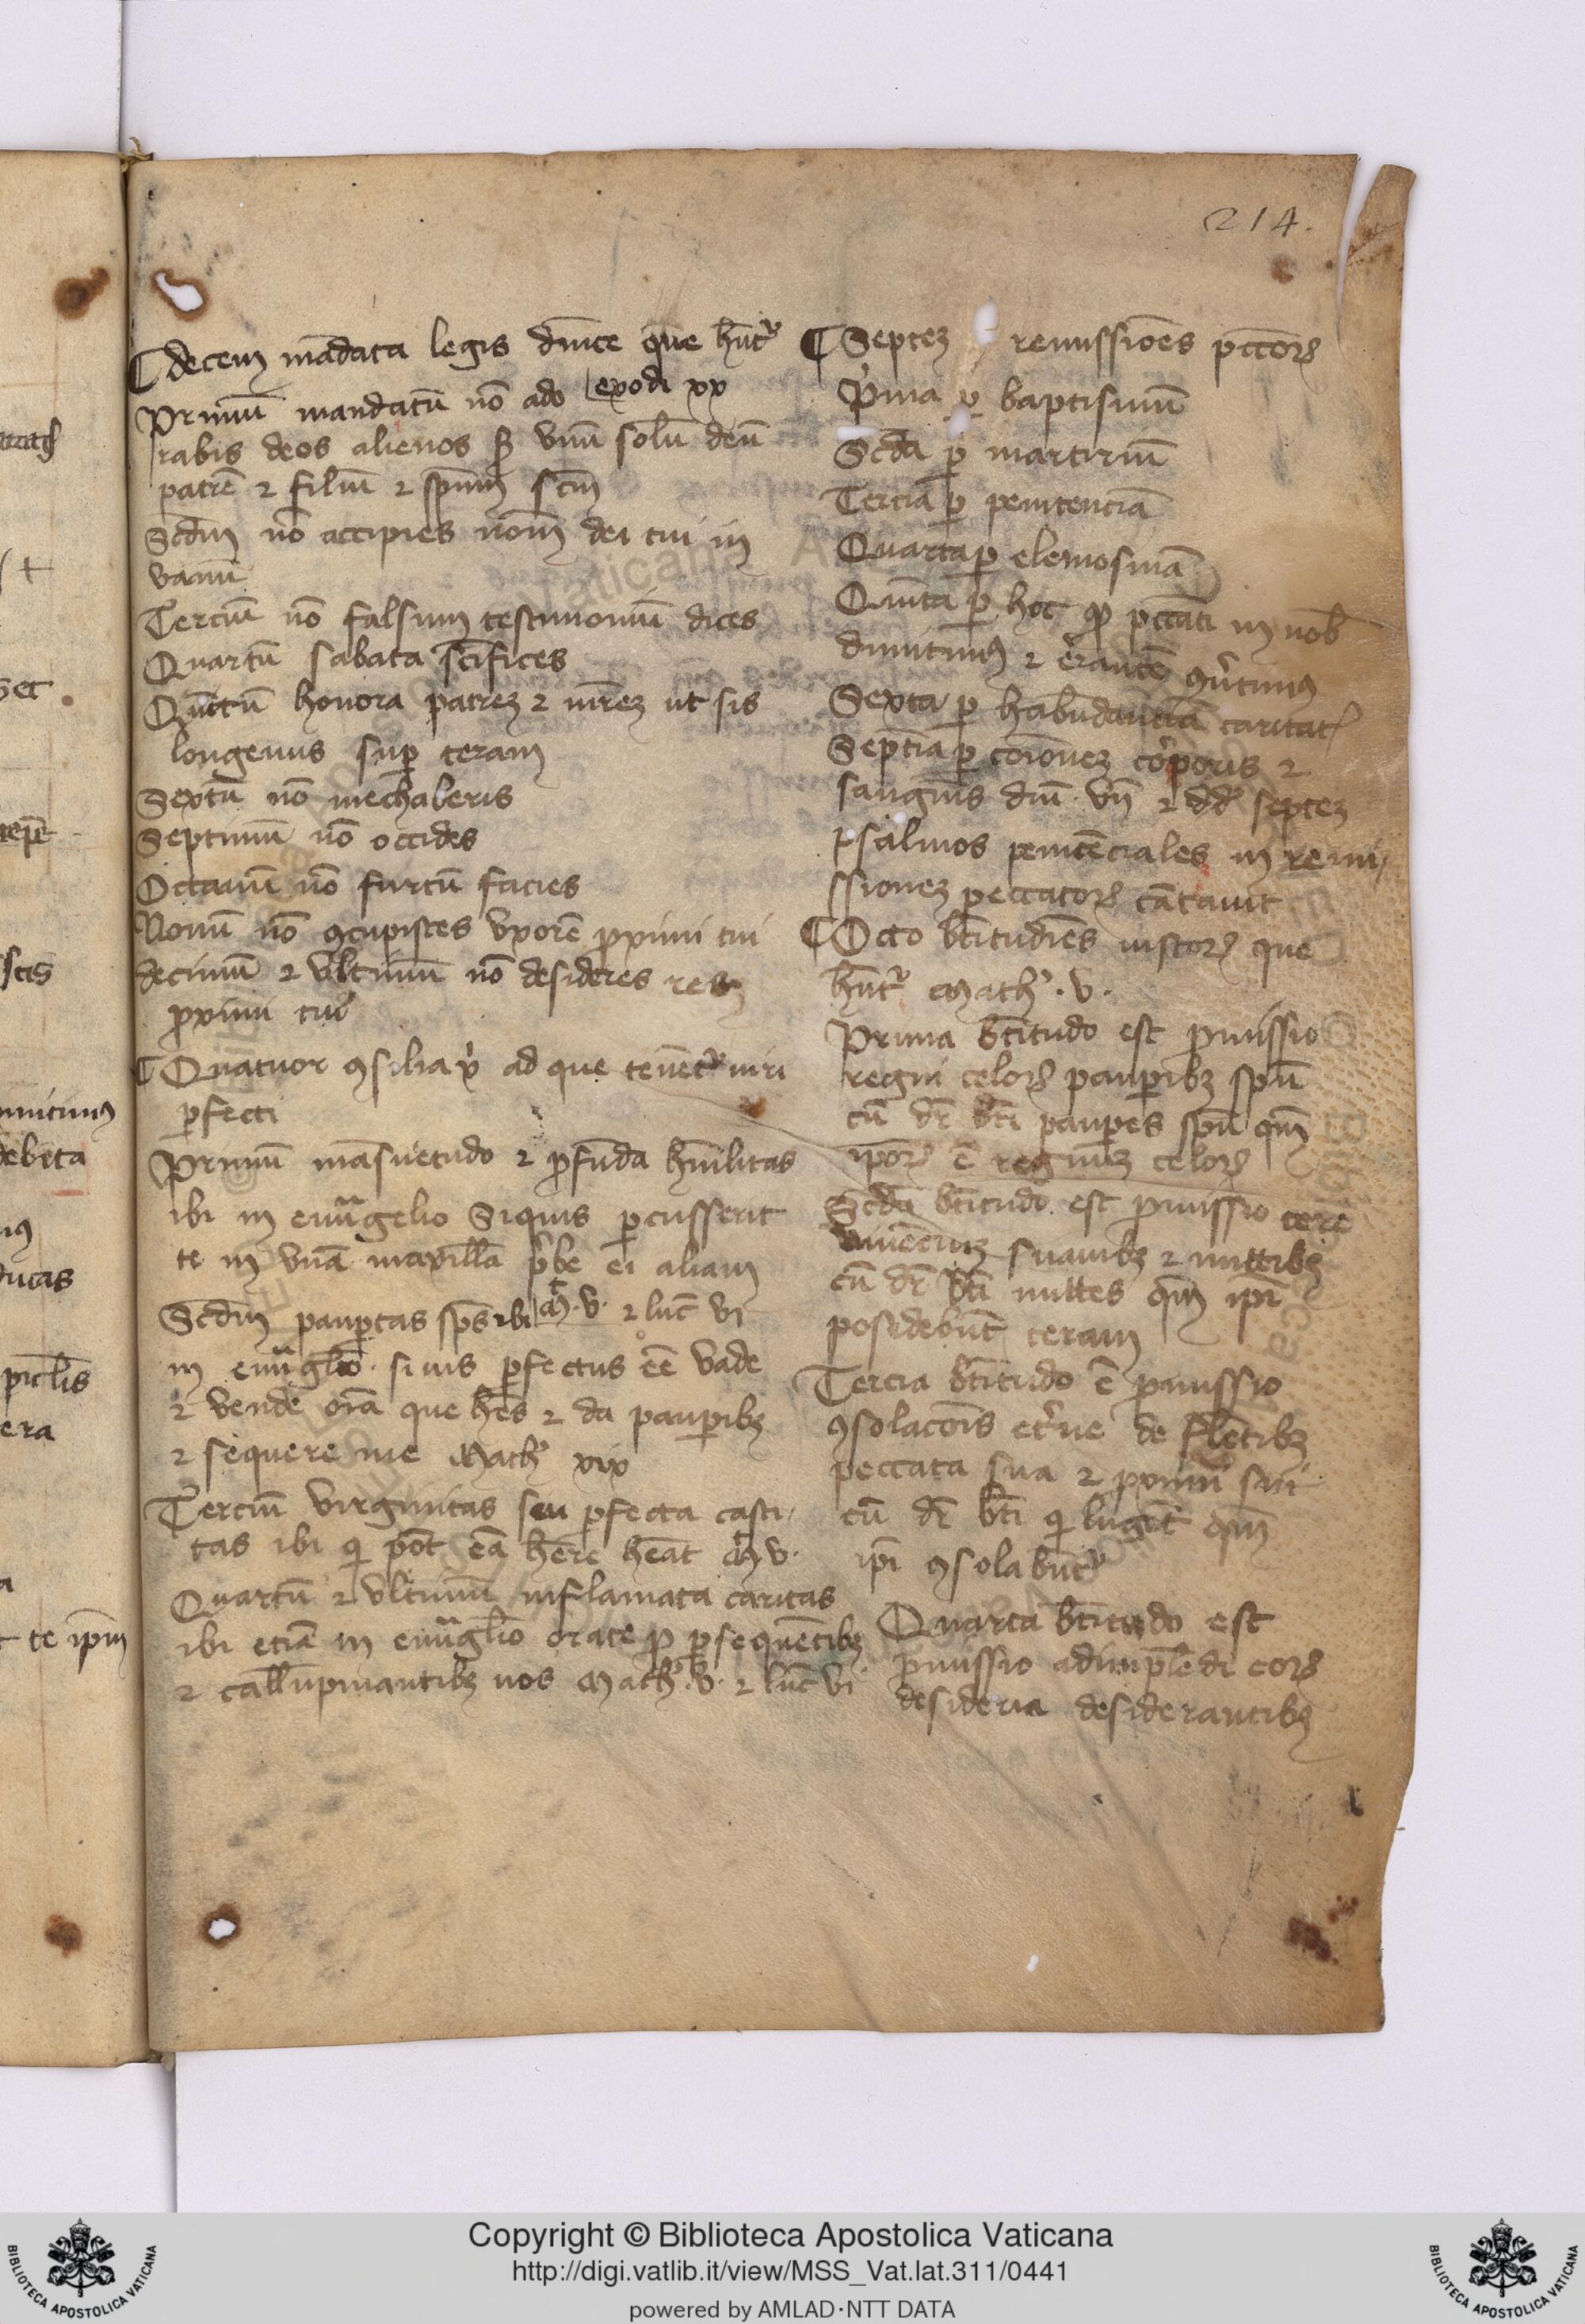 214.
decem mādata legis dn̄ice que hn̄tᷣ
Primū mandatū nō ado exodi xx
rabis deos alienos sꝫ vnū solū deū
patrē ⁊ filiū ⁊ sp̄um sc̄m
Scd̄m nō accipies nom̄ dei tui in
vanū
Terciū nō falsum testimoniū dices
Quartū sabata sc̄ifices
Quītū honora patreꝫ ⁊ mr̄eꝫ ut sis
longeuus suꝑ teram
Sextū nō mechaberis
Septimū nō occides
Octauū nō furtū facies
Nonū nō ꝯcupisces vxorē ꝓximi tui
decimū ⁊ vltimū nō desideres rem
ꝓximi tui
Quatuor ꝯsilia ad que tenētᷣ uiri
ꝑfecti
Primū māsuetudo ⁊ ꝓfūda hūilitas
ibi in euāgelio Siquis ꝑcusserit
te in vnā maxillā p̄be ei aliam
Scd̄m pauꝑtas sp̄s ibi M̄ .v. ⁊ luc̄ vi
in euāgl̄io. si uis ꝑfectus eē vade
⁊ vende oīa que hēs ⁊ da pauꝑibꝫ
⁊ sequere me Math̓ xix
Terciū virginitas seu ꝑfecta casti
tas ibi qi pōt eā hēre hēat M̄ v.
Quartū ⁊ vltimū inflamata caritas
ibi etiā in euāgl̄io orate ꝓ ꝑsequētibꝫ
⁊ callūpniantibꝫ uos Math̓. v. ⁊ luc̄ vi
Septeꝫ remissiōes pc̄coꝝ
P̓ma ꝑ baptismū
Scd̄a ꝑ martiriū
Tercia ꝑ penitenciā
Quarta ꝑ elemosinā
Quīta ꝑ hoc ꝙ pc̄cāti in nob̄
dimitimꝰ ⁊ erantē ꝯu̓timꝰ
Sexta ꝑ habūdanciā caritatꝭ
Septīa ꝑ coīoneꝫ corporis ⁊
sanguīs dn̄i. vn̄ ⁊ dd̄ septeꝫ
psalmos penitēciales in remi
ssioneꝫ peccatoꝝ cātauit
Octo bt̄itudīes iustoꝝ que
hn̄tᷣ Math̓. v.
Prima bt̄itudo est ꝓmissio
regni celoꝝ pauꝑibꝫ sp̄u
cū dr̄ bt̄i pauꝑes sp̄u qm̄
ip̄oꝝ ē regnuꝫ celoꝝ
Scd̄a bt̄itudo est ꝓmissio tere
viuēciuꝫ suauibꝫ ⁊ mittibꝫ
cū dr̄ bt̄i mittes qm̄ ip̄i
posidebūt teram
Tercia bt̄itudo ē ꝓmissio
ꝯsolacōis et̓ne de flētibꝫ
peccata sua ⁊ ꝓximi sui
cū dr̄ bt̄i qi lugēt qm̄
ip̄i ꝯsolabūtᷣ
Quarta bt̄itudo est
ꝓmissio adimplēdi eoꝝ
desideria desiderantibꝫ
Copyright © Biblioteca Apostolica Vaticana
http://digi.vatlib.it/view/MSS_Vat.lat.311/0441
powered by AMLAD·NTT DATA
BIBLIOTECA APOSTOLICA VATICANA
BIBLIOTECA APOSTOLICA VATICANA